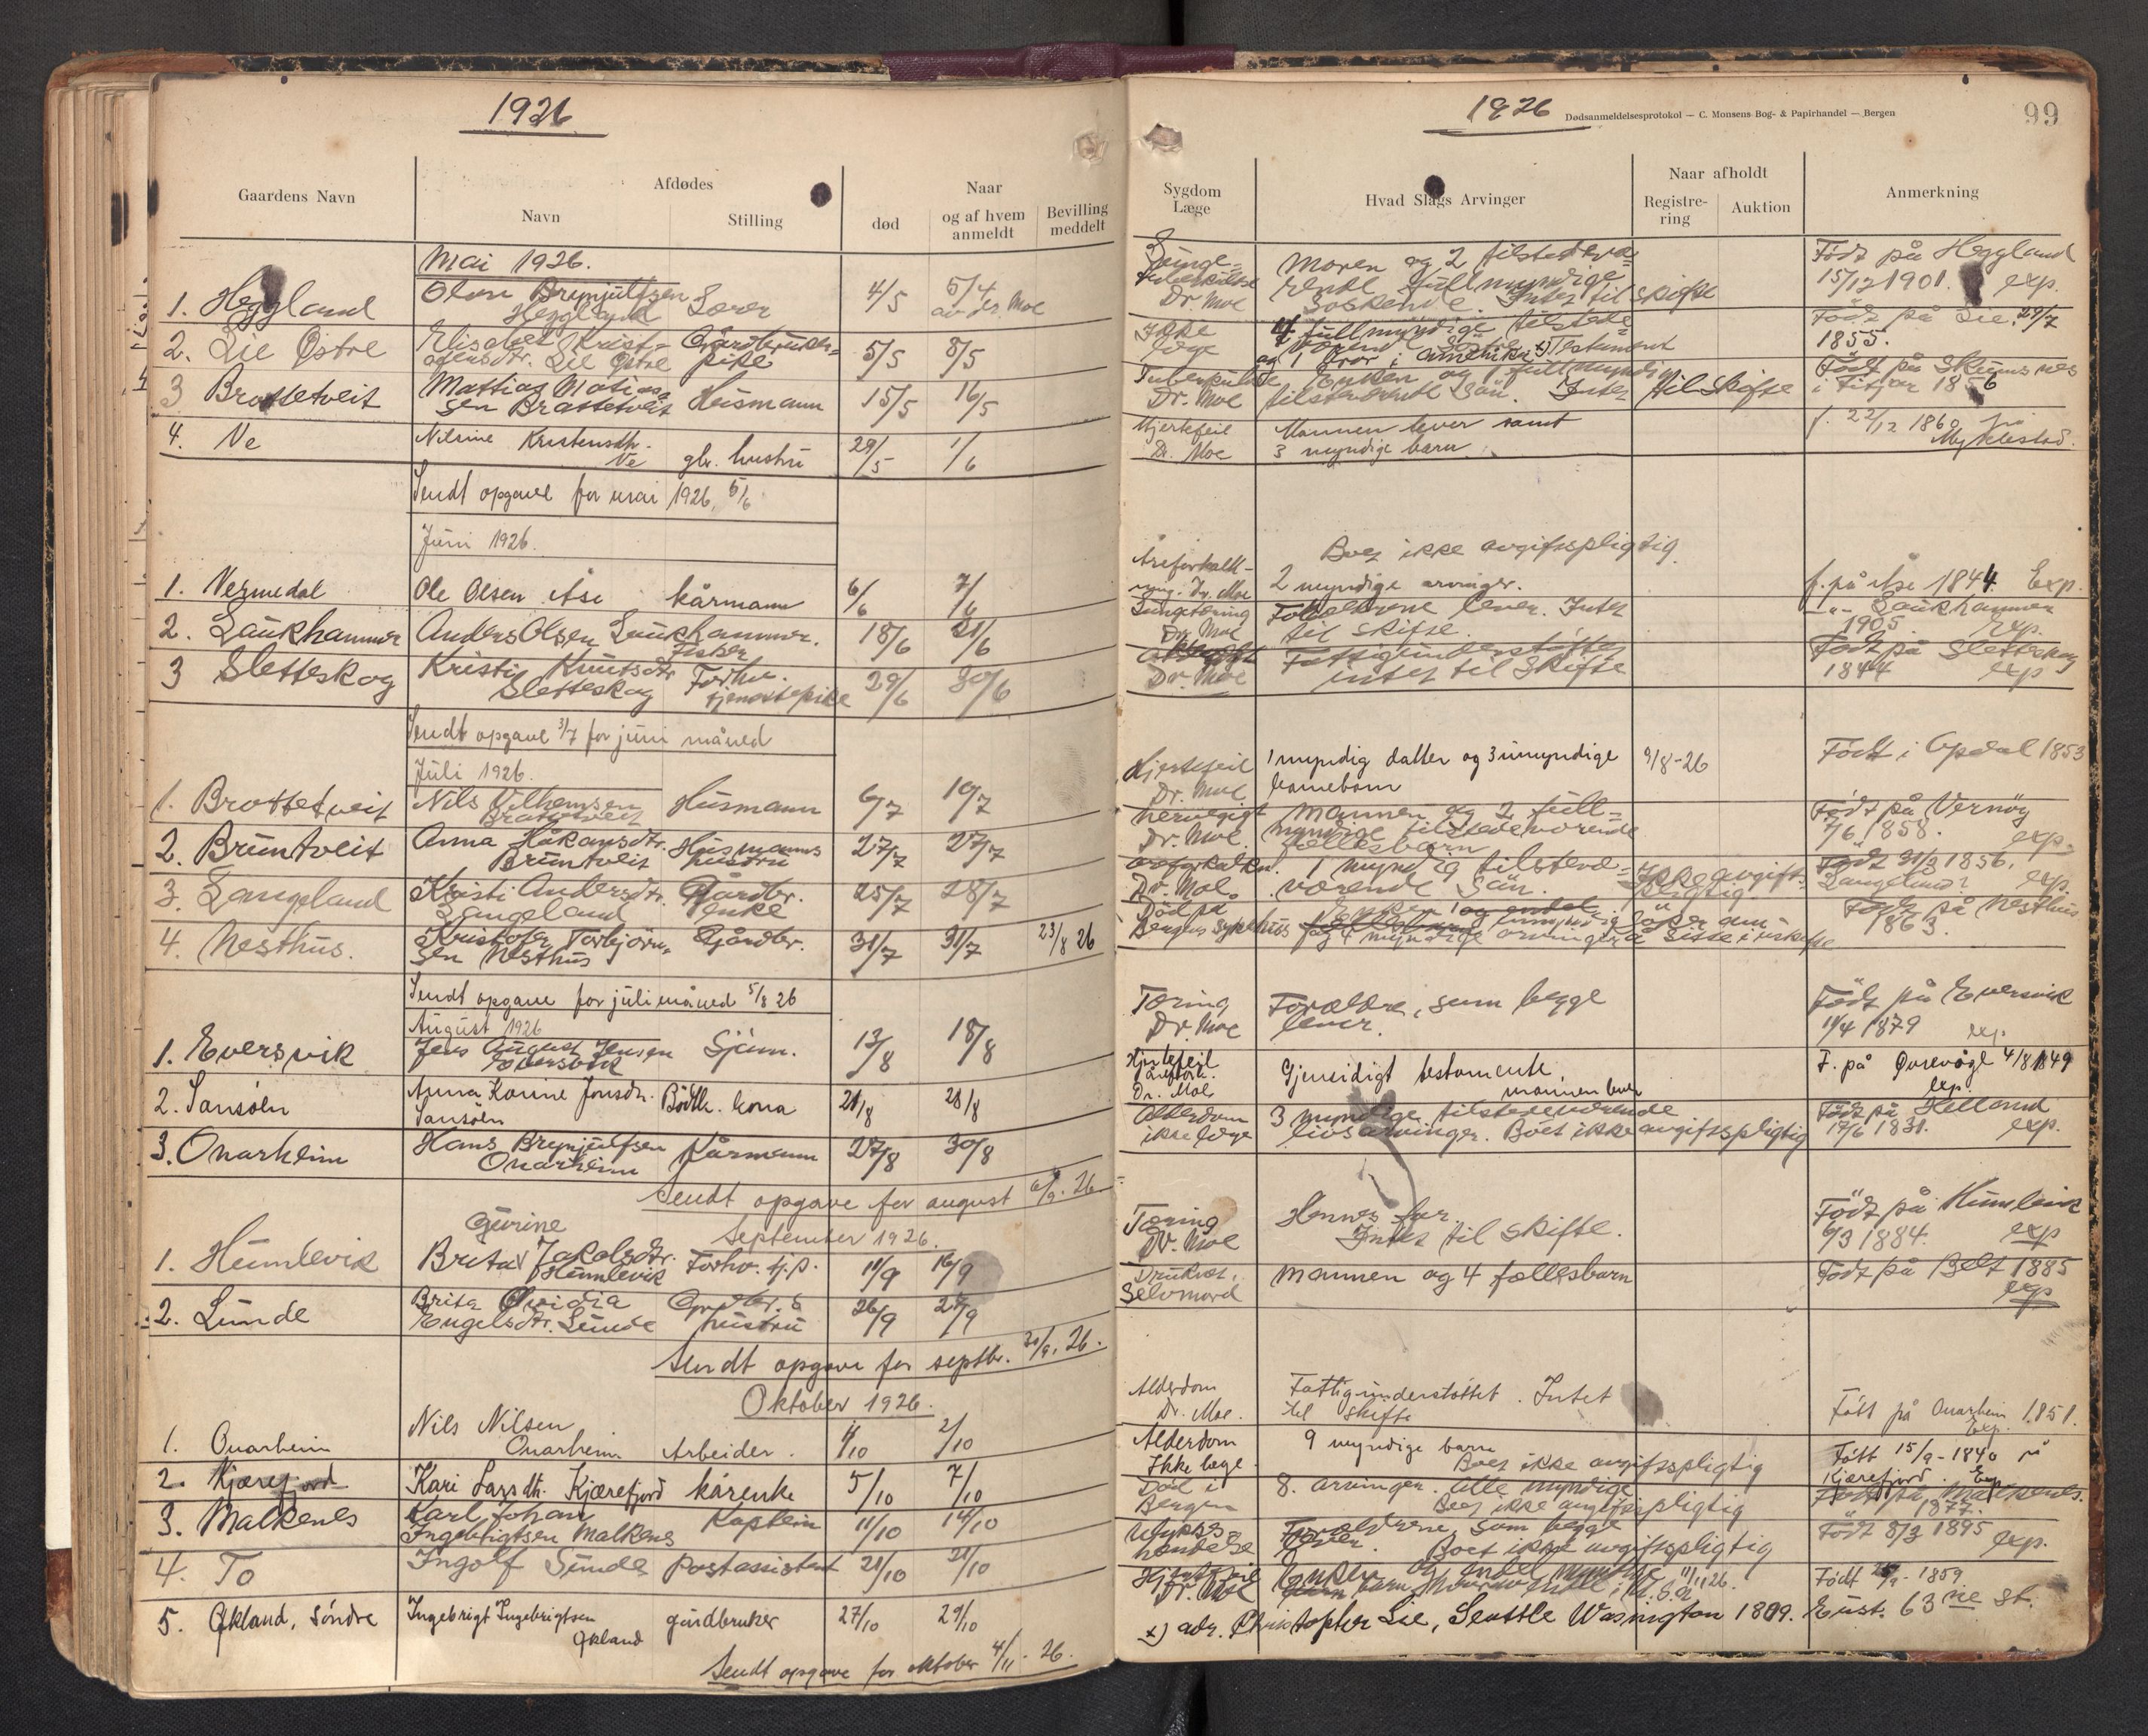 1926
Gaardens Navn
Afdødes
Navn
Stilling
død
Naar
og af hvem
anmeldt
Bevilling
meddelt
Mai 1926.
1. Heggland
Brynjulfsen
Heggland
4/5
5/4
av dr. Moe
2. Lie Østre
Lie Østre
5/5
8/5
3 Brattetveit
Mattias
sen Brattetveit
Husmann
15/5
16/5
4. Ve
Nilsine Kristensdtr.
Ve
gbr. hustru
29/5
1/6
Sendt opgave for mai 1926, 5/6
Juni 1926.
1. Vermedal
Ole Olsen Åse
kårmann
6/6
7/6
2. Laukhammer
Anders Olsen Laukhammer.
Fisker
18/6
21/6
3 Sletteskog
Kristi Knutsdtr
Sletteskog
Forhv.
tjenestepike
29/6
30/6
Sendt opgave 3/7 for juni måned
Juli 1926.
1. Brattetveit
Nils Vilhemsen
Brattetveit
Husmann
6/7
10/7
2. Bruntveit
Anna Håkonsdtr.
Bruntveit
Husmanns
hustru
27/7
27/7
3. Langeland
Kristi Andersdtr.
Langeland
Gårdbr.
enke
25/7
28/7
4. Nesthus.
Kristofer Torbjörn-
sen Nesthus
Gårdbr.
31/7
31/7
23/8 26
Sendt opgave for juli måned 5/8 26
August 1926
1. Eversvik
Jens August Jensen
Eversvik
Sjöm.
13/8
18/8
2. Sansöln
Anna Karine Jonsdtr.
Sansöln
kona
21/8
28/8
3. Onarheim
Hans Brynjulfsen
Onarheim
Kårmann
27/8
30/8
Sendt opgave for august 6/9. 26
September 1926.
1. Humlevik
Gurine
Brita Jakobsdtr.
Humlevik
Forhv. tj.p.
11/9
16/9
2. Lunde
Brita
Engelsdtr. Lunde
hustru
26/9
27/9
Sendt opgave for septbr. 30/9. 26.
Oktober 1926.
1. Onarheim
Nils Nilsen
Onarheim
Arbeider.
2/10
2. Kjærefjord
Kari Larsdtr. Kjærefjord
kårenke
5/10
7/10
3. Malkenes
Karl Johan
Ingebrigtsen Malkenes
Kaptein
11/10
14/10
4. To
Ingolf Sunde
Postassistent
21/10
21/10
5. Økland, Söndre
Ingebrigt Ingebrigtsen
Økland
gårdbruker
27/10
29/10
Sendt opgave for oktober 4/11. 26.
1926
Dødsanmeldelsesprotokol — C. Monsens Bog- & Papirhandel — Bergen
99
Sygdom
Læge
Hvad Slags Arvinger
Naar afholdt
Registre-
ring
Auktion
Anmerkning
Lunge-
tuberkulose
Dr. Moe
Moren og 2 tilstedevæ-
rende fullmyndige
Söskende. Intet til skifte
Född på Heggland
15/12 1901. exp.
Ikke
læge
4 fullmyndige tilstede-
og 1 bror i Amerika x) Testament
Född på Lie, 29/7
1855.
Tuberkulose
Dr. Moe
Enken og 1 fullmyndig
tilstedevær. sön. Intet til Skifte
Född på
i Fitjar 1856
Hjertefeil
Dr. Moe
Mannen lever samt
3 myndige barn
f. 22/12 1860 på
Myklestad.
Boet ikke avgiftspligtig.
Åreforkalk-
ning. Dr. Moe
2 myndige arvinger.
f. på Åse 1844. Exp.
Lungetæring
Dr. Moe
Foreldrene lever. Intet
til skifte.
Laukhammer
1905 Exp.
Dr. Moe
Fattigunderstöttet
intet til skifte
Född på Sletteskog
1844 exp
Hjertefeil
Dr. Moe
1 myndig datter og 3 umyndige
barnebarn
9/8-26
Född i Opdal 1853
Dr. Moe.
Mannen og 2 full-
myndige tilstedeværende
fellesbarn
Född på Vernöy
7/6 1858. exp.
Dr. Moe.
1 myndig tilstede-
værende sön.
Ikke avgift-
pligtig
Född 31/3 1856.
Langeland? exp.
Död på
Bergens sykehus
og 4 myndige arvinger
Född på Nesthus
1863.
Tæring
Dr. Moe
Forældre, som begge
lever.
Född på Eversvik
11/4 1879 exp
Hjertefeil
Dr. Moe
Gjensidigt testamente.
mannen lever
F. på 4/8 1849
exp.
Alderdom
ikke læge
3 myndige tilstedeværende
livsarvinger. Boet ikke avgiftspligtig
Född på Helland
17/6 1831. exp.
Tæring
Dr. Moe
Hennes far.
Intet til skifte.
Född på Humlevik
6/3 1884. exp
Druknet,
Selvmord
Mannen og 4 fællesbarn
Född på Belt 1885
exp
Alderdom
Dr. Moe.
Fattigunderstöttet. Intet
til skifte
Född på Onarheim 1851.
Exp.
Alderdom
Ikke læge
9 myndige barn
Boet ikke avgiftspligtig
Född 15/9-1840 på
Kjærefjord. Exp
Död i
Bergen
8. arvinger. Alle myndige
Boet ikke avgiftspligtig
Född på Malkenes.
1877.
Ulykkes
hendelse
Foreldrene, som begge
lever. Boet ikke avgiftspligtig
Född 8/3 1895 exp.
Hjertefeil
Dr. Moe
Enken og endel myndige 11/11 26.
barn i U.S.A.
Född 1859
x) adr. Christopher Lie, Seattle Wasnigton 1809. East. 63 rie St.